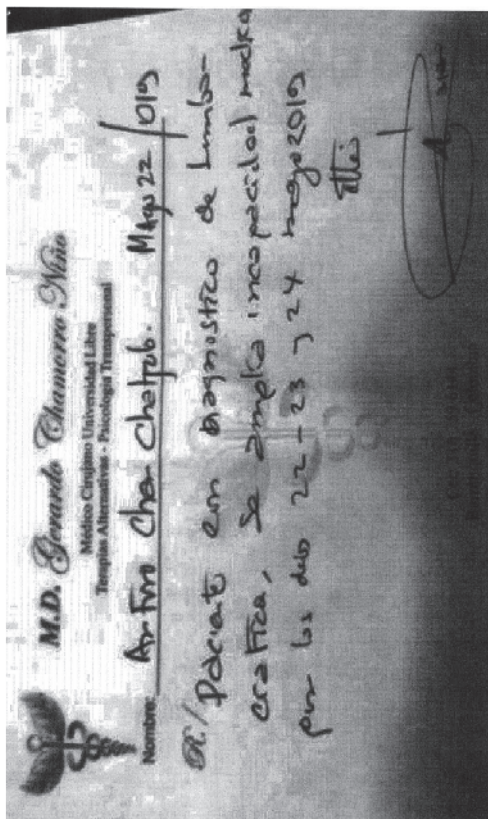 M.D. Gerardo Chamorro Niño
Médico Cirujano Universidad Libre
Terapias Alternativas - Psicología Transpersonal
Nombre: Arturo Char Chaljub. Mayo 22/019
R./ Paciente con diagnostico de Lumbo-
ciatica, se amplia incapacidad medica
por los dias 22 - 23 y 24 mayo 2019